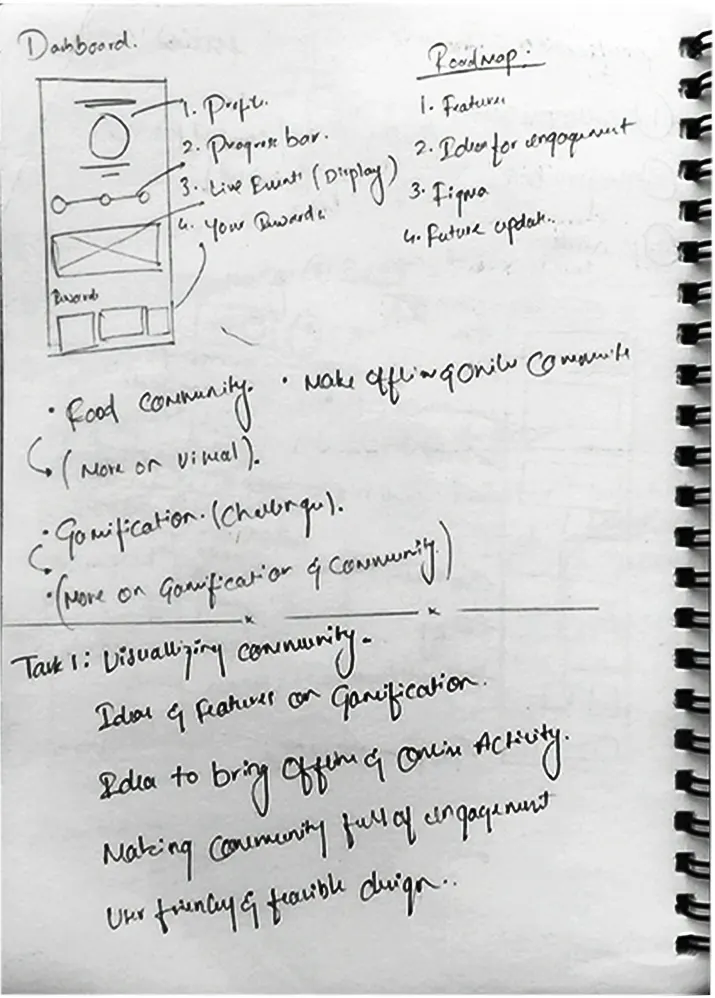 Dashboard.
1. Profile.
2. Progress bar.
3. Live Events (Display)
4. Your Rewards
Rewards
Roadmap:
1. Features
2. Ideas for engagement
3. Figma
4. Future update..
• Road community. • Make offline & online Community
(More on visual).
• Gamification. (Challenges).
• (More on Gamification & Community)
Task 1: Visuallizing community.
Ideas & features on Gamification.
Idea to bring offline & online Activity.
Making community full of engagement
User friendly & feasible design..